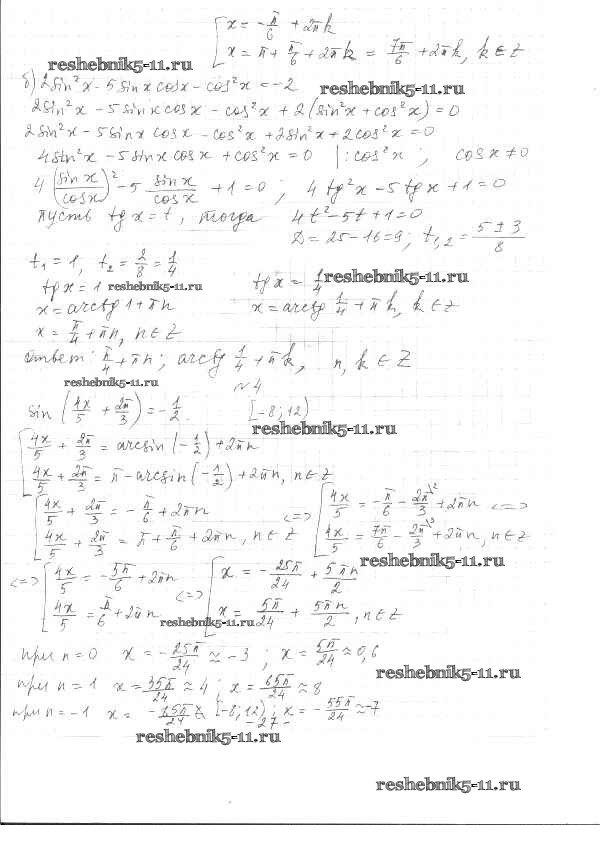 x = -π/6 + 2πk
x = π + π/6 + 2πk = 7π/6 + 2πk, k ∈ Z
reshebnik5-11.ru
б) 2sin²x - 5sinx cosx - cos²x = -2
reshebnik5-11.ru
2sin²x - 5sinx cosx - cos²x + 2(sin²x + cos²x) = 0
2sin²x - 5sinx cosx - cos²x + 2sin²x + 2cos²x = 0
4sin²x - 5sinx cosx + cos²x = 0 |: cos²x ; cosx ≠ 0
4(sinx/cosx)² - 5 sinx/cosx + 1 = 0 ; 4tg²x - 5tgx + 1 = 0
пусть tgx = t, тогда 4t² - 5t + 1 = 0
D = 25 - 16 = 9; t₁,₂ = (5 ± 3)/8
t₁ = 1, t₂ = 2/8 = 1/4
tgx = 1 reshebnik5-11.ru tgx = 1/4 reshebnik5-11.ru
x = arctg1 + πn x = arctg 1/4 + πk, k ∈ Z
x = π/4 + πn, n ∈ Z
ответ: π/4 + πn; arctg 1/4 + πk, n, k ∈ Z
reshebnik5-11.ru
№4
sin(4x/5 + 2π/3) = -1/2 [-8; 12)
reshebnik5-11.ru
4x/5 + 2π/3 = arcsin(-1/2) + 2πn
4x/5 + 2π/3 = π - arcsin(-1/2) + 2πn, n ∈ Z
4x/5 + 2π/3 = -π/6 + 2πn <=> 4x/5 = -π/6 - 2π/3 + 2πn <=>
4x/5 + 2π/3 = π + π/6 + 2πn, n ∈ Z 4x/5 = 7π/6 - 2π/3 + 2πn, n ∈ Z
reshebnik5-11.ru
<=> 4x/5 = -5π/6 + 2πn <=> x = -25π/24 + 5πn/2
4x/5 = π/2 + 2πn x = 5π/24 + 5πn/2, n ∈ Z
reshebnik5-11.ru
при n = 0 x = -25π/24 ≈ -3 ; x = 5π/24 ≈ 0,6
reshebnik5-11.ru
при n = 1 x = 35π/24 ≈ 4 ; x = 65π/24 ≈ 8
при n = -1 x = -85π/24 ∉ [-8; 12) ; x = -55π/24 ≈ -7
-27-
reshebnik5-11.ru
reshebnik5-11.ru